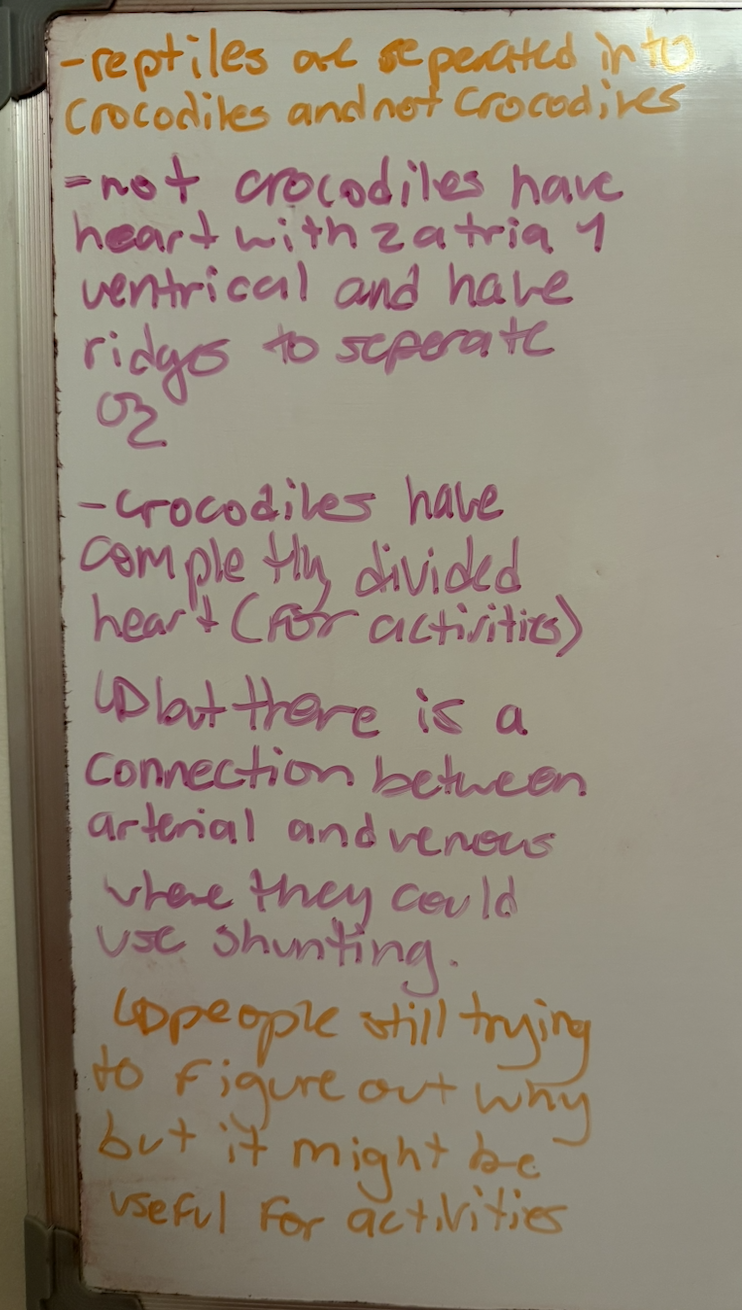 -reptiles are seperated into
crocodiles and not crocodiles
-not crocodiles have
heart with 2 atria 1
ventrical and have
ridges to seperate
O2
-crocodiles have
completly divided
heart (for activities)
↳ but there is a
connection between
arterial and venous
where they could
use shunting.
↳ people still trying
to figure out why
but it might be
useful for activities